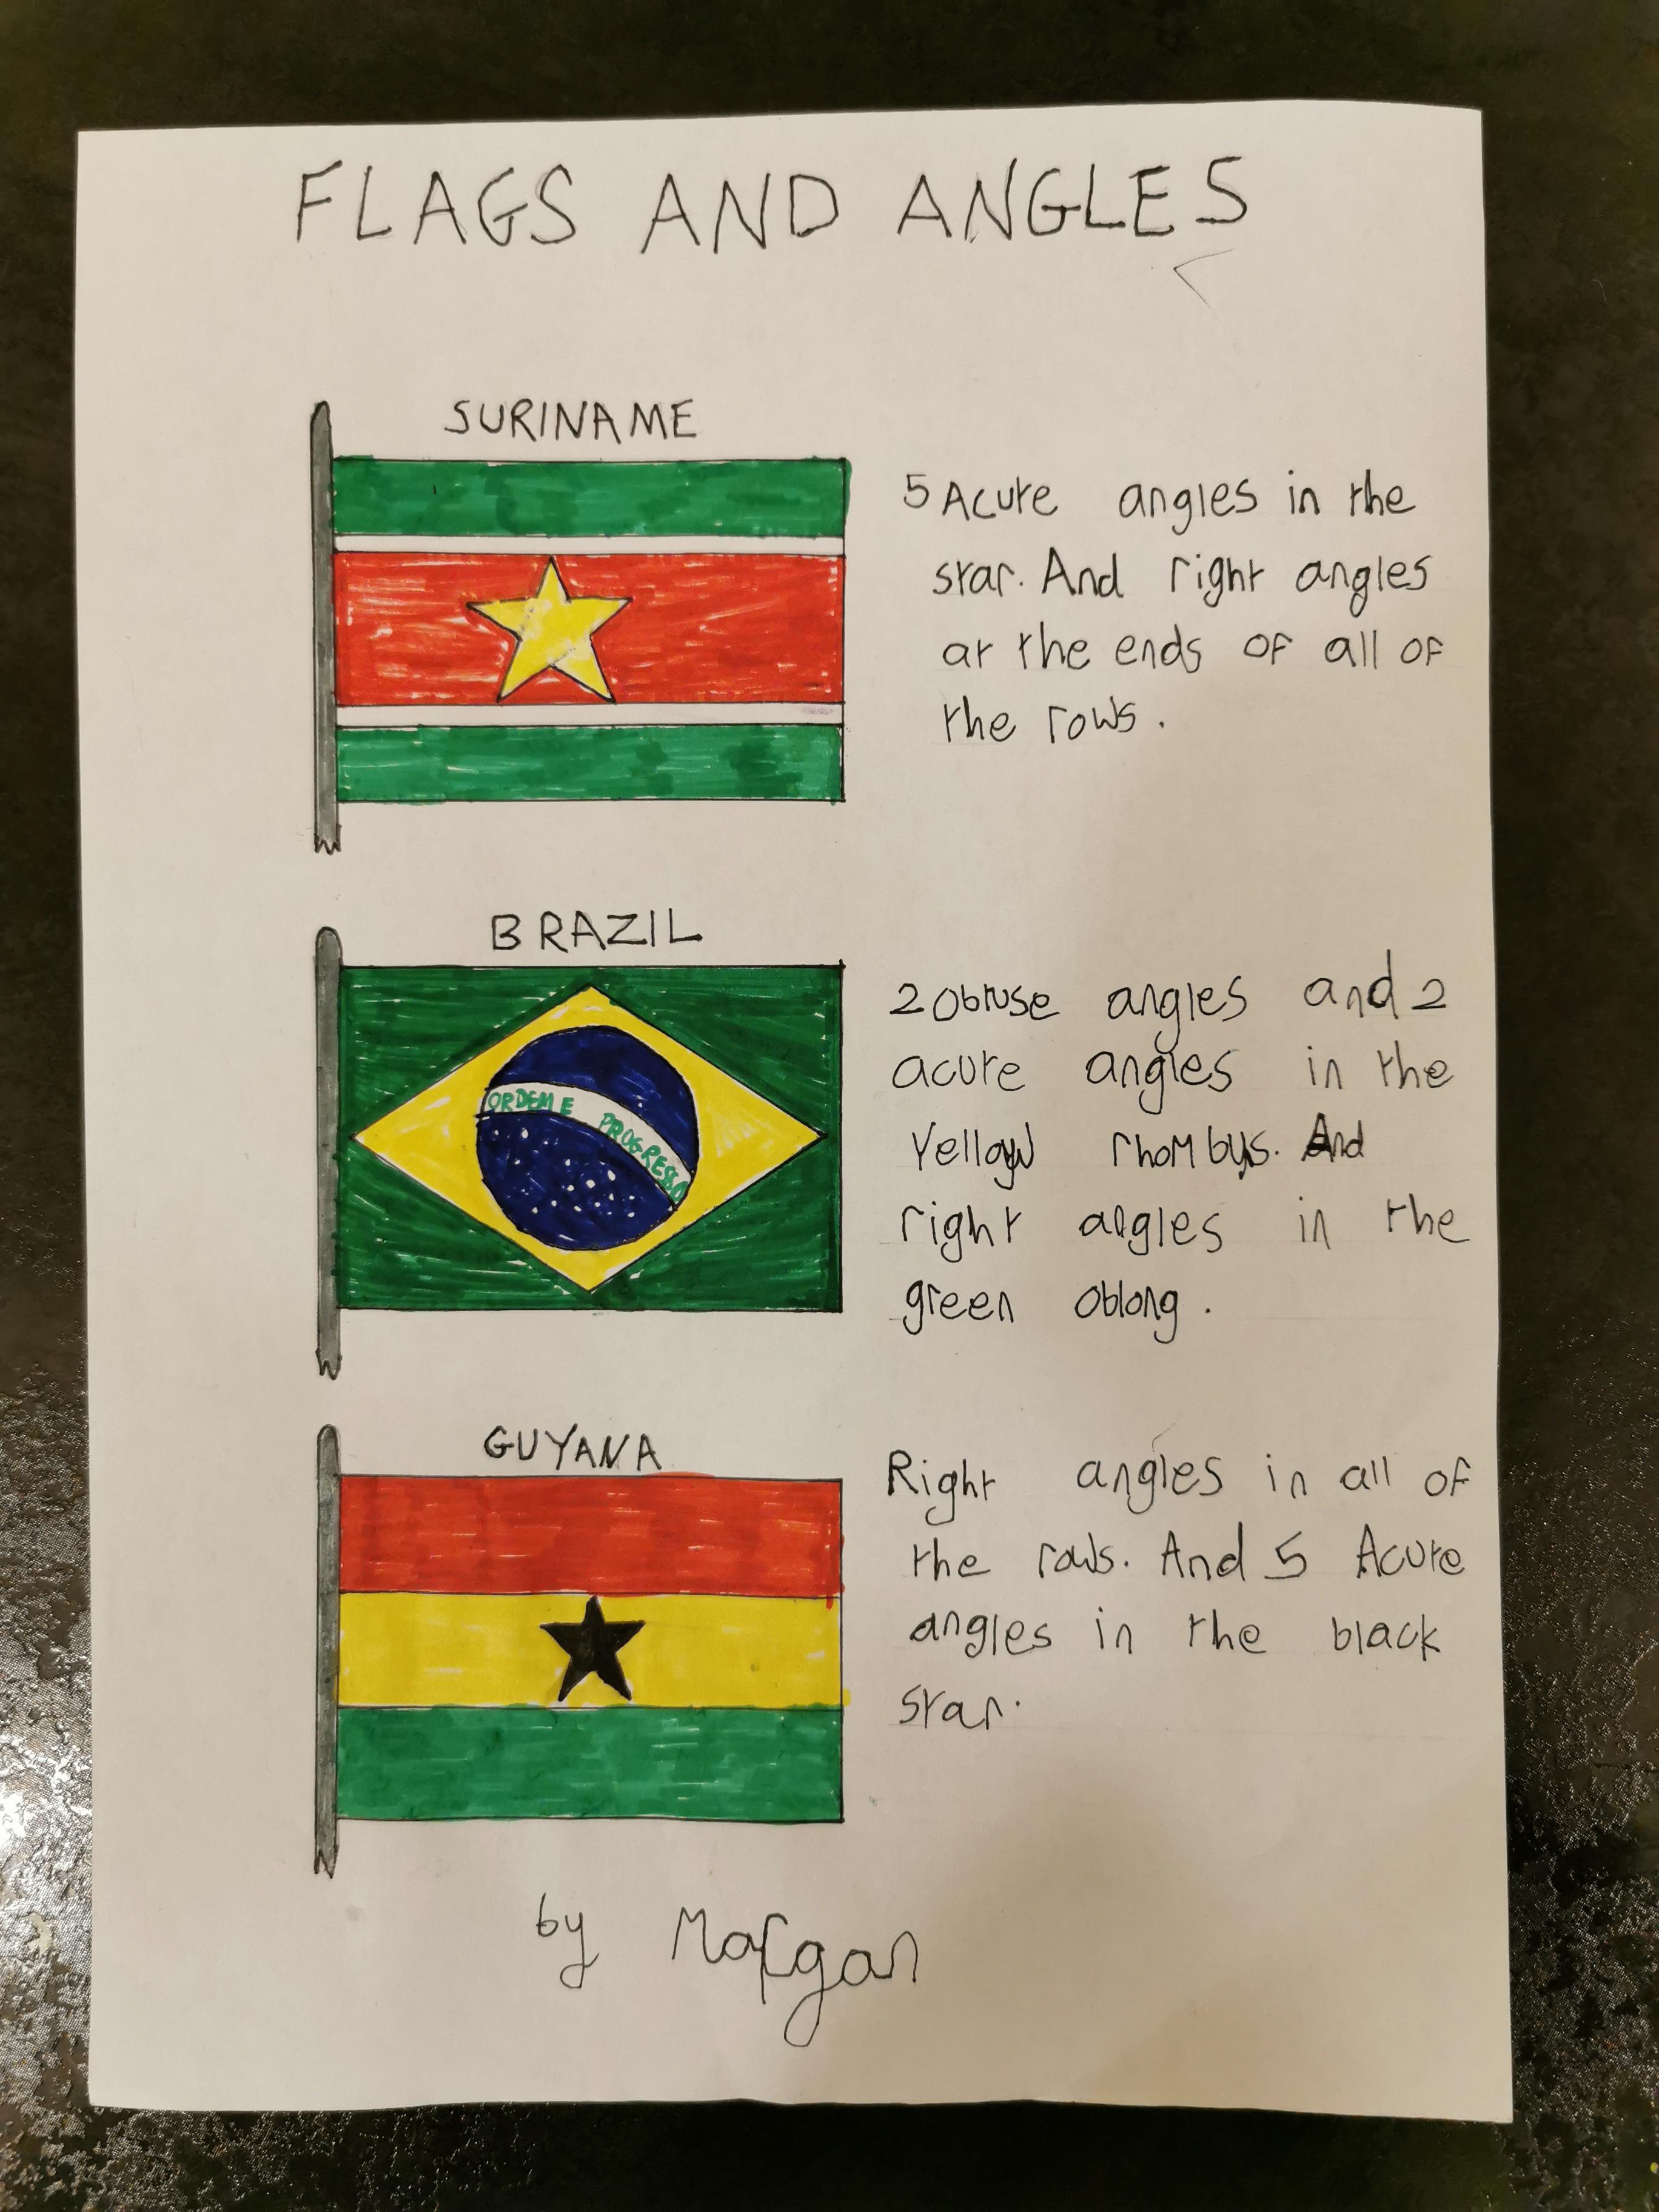 FLAGS AND ANGLES
SURINAME
5 Acute angles in the
star. And right angles
at the ends of all of
the rows.
BRAZIL
ORDEM E PROGRESSO
2 obtuse angles and 2
acute angles in the
Yellow rhombus. And
right angles in the
green oblong.
GUYANA
Right angles in all of
the rows. And 5 Acute
angles in the black
star.
by Morgan